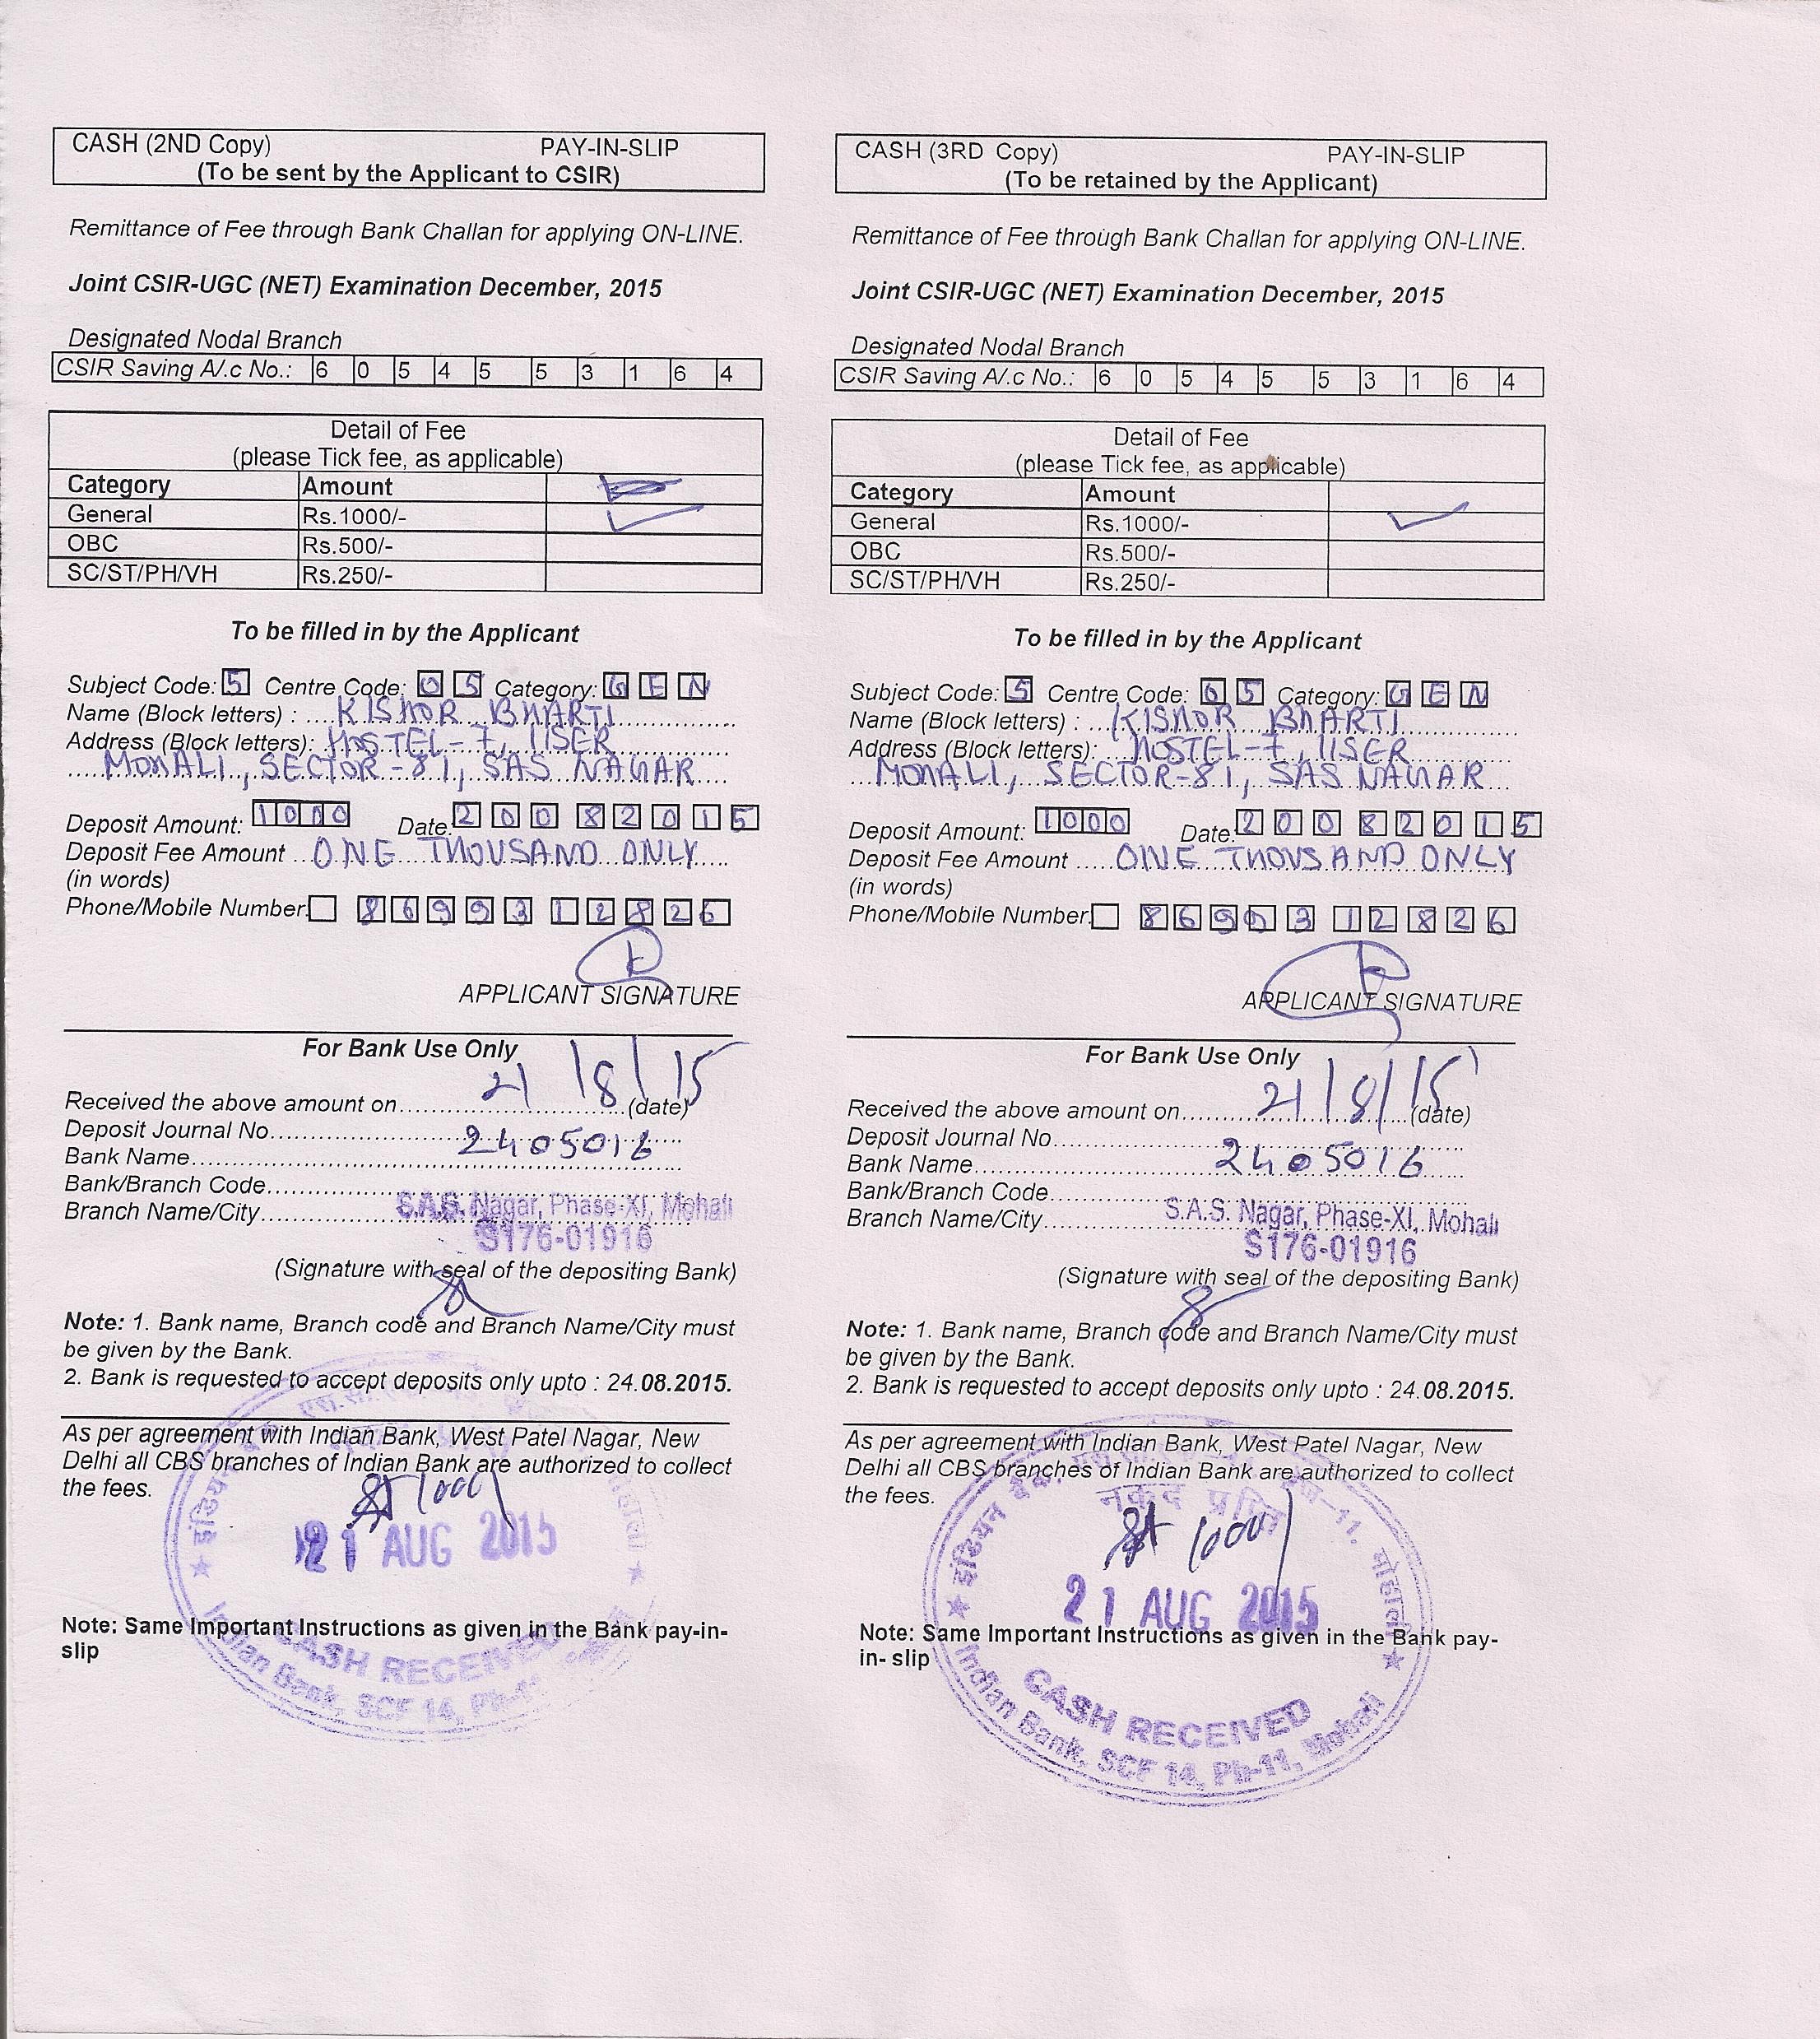 CASH (2ND Copy) PAY-IN-SLIP
(To be sent by the Applicant to CSIR)
Remittance of Fee through Bank Challan for applying ON-LINE.
Joint CSIR-UGC (NET) Examination December, 2015
Designated Nodal Branch
CSIR Saving A/.c No.: 6 0 5 4 5 5 3 1 6 4
Detail of Fee
(please Tick fee, as applicable)
Category Amount
General Rs.1000/-
OBC Rs.500/-
SC/ST/PH/VH Rs.250/-
To be filled in by the Applicant
Subject Code: 5 Centre Code: 0 5 Category: G E N
Name (Block letters) : KISHOR BHARTI
Address (Block letters): HOSTEL-7, IISER
MOHALI, SECTOR-81, SAS NAGAR
Deposit Amount: 1000 Date: 2 0 0 8 2 0 1 5
Deposit Fee Amount ONE THOUSAND ONLY
(in words)
Phone/Mobile Number 8 6 9 9 3 1 2 8 2 6
APPLICANT SIGNATURE
For Bank Use Only
Received the above amount on 21/8/15 (date)
Deposit Journal No 2405016
Bank Name
Bank/Branch Code
Branch Name/City S.A.S. Nagar, Phase-XI, Mohali
S176-01916
(Signature with seal of the depositing Bank)
Note: 1. Bank name, Branch code and Branch Name/City must
be given by the Bank.
2. Bank is requested to accept deposits only upto : 24.08.2015.
As per agreement with Indian Bank, West Patel Nagar, New
Delhi all CBS branches of Indian Bank are authorized to collect
the fees.
1000
21 AUG 2015
Note: Same Important Instructions as given in the Bank pay-in-
slip
CASH RECEIVED
Indian Bank, SCF 14, Ph-11
CASH (3RD Copy) PAY-IN-SLIP
(To be retained by the Applicant)
Remittance of Fee through Bank Challan for applying ON-LINE.
Joint CSIR-UGC (NET) Examination December, 2015
Designated Nodal Branch
CSIR Saving A/.c No.: 6 0 5 4 5 5 3 1 6 4
Detail of Fee
(please Tick fee, as applicable)
Category Amount
General Rs.1000/-
OBC Rs.500/-
SC/ST/PH/VH Rs.250/-
To be filled in by the Applicant
Subject Code: 5 Centre Code: 0 5 Category: G E N
Name (Block letters) : KISHOR BHARTI
Address (Block letters): HOSTEL-7, IISER
MOHALI, SECTOR-81, SAS NAGAR
Deposit Amount: 1000 Date: 2 0 0 8 2 0 1 5
Deposit Fee Amount ONE THOUSAND ONLY
(in words)
Phone/Mobile Number 8 6 9 9 3 1 2 8 2 6
APPLICANT SIGNATURE
For Bank Use Only
Received the above amount on 21/8/15 (date)
Deposit Journal No 2405016
Bank Name
Bank/Branch Code
Branch Name/City S.A.S. Nagar, Phase-XI, Mohali
S176-01916
(Signature with seal of the depositing Bank)
Note: 1. Bank name, Branch code and Branch Name/City must
be given by the Bank.
2. Bank is requested to accept deposits only upto : 24.08.2015.
As per agreement with Indian Bank, West Patel Nagar, New
Delhi all CBS branches of Indian Bank are authorized to collect
the fees.
इंडियन बैंक, 11, मोहाली
नकद
1000
21 AUG 2015
Note: Same Important Instructions as given in the Bank pay-
in- slip
CASH RECEIVED
Indian Bank, SCF 14, Ph-11, Mohali